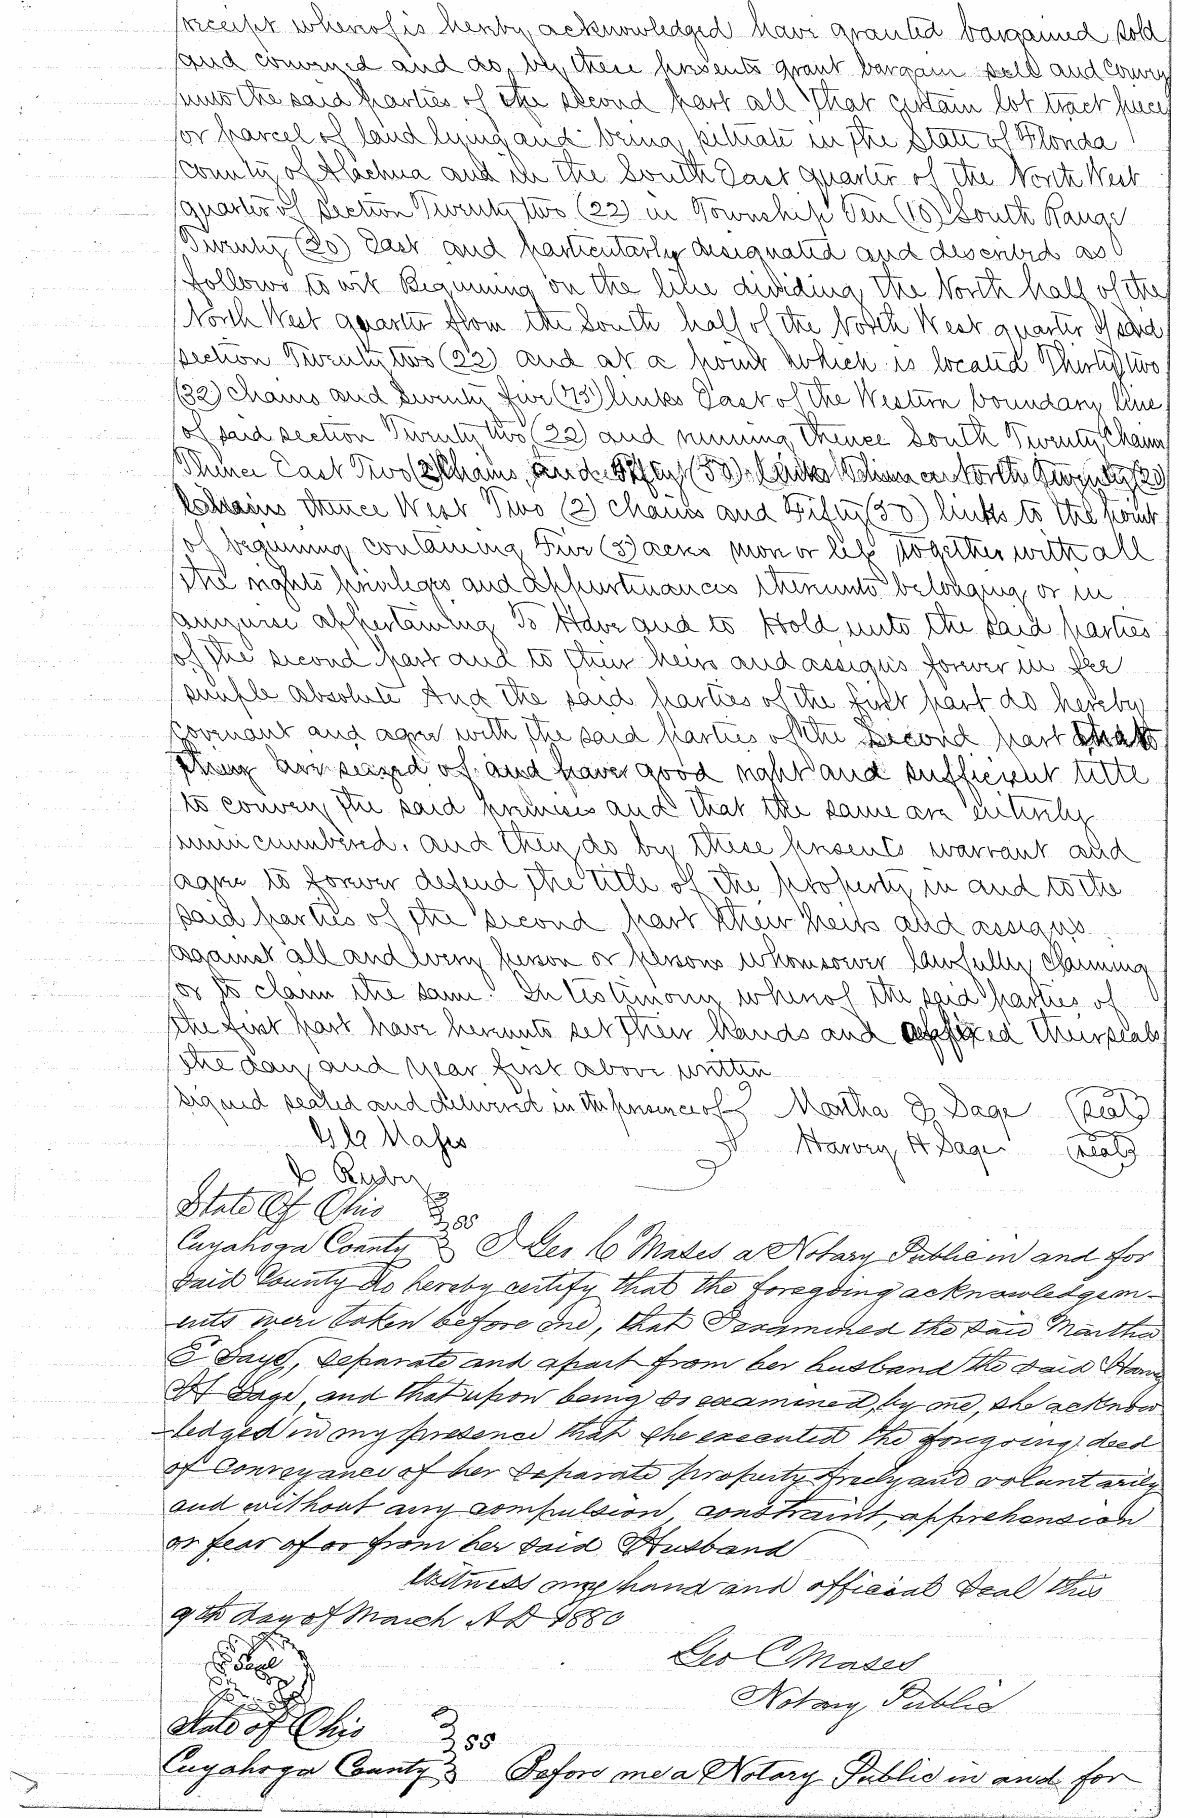 receipt whereof is hereby acknowledged have granted bargained sold
and conveyed and do by these presents grant bargain sell and convey
unto the said parties of the second part all that certain lot tract piece
or parcel of land lying and being situate in the State of Florida
County of Alachua and in the South East quarter of the North West
quarter of section Twenty two (22) in Township Ten (10) South Range
Twenty (20) East and particularly designated and described as
follows to wit Beginning on the line dividing the North half of the
North West quarter from the South half of the North West quarter of said
section Twenty two (22) and at a point which is located Thirty two
(32) chains and Seventy five (75) links East of the Western boundary line
of said section Twenty two (22) and running thence South Twenty Chains
Thence East Two (2) Chains, and Fifty (50) links Thence North Twenty (20)
Chains thence West Two (2) chains and Fifty (50) links to the point
of beginning containing Five (5) acres more or less together with all
the rights privileges and appurtenances thereunto belonging or in
anywise appertaining To Have and to Hold unto the said parties
of the second part and to their heirs and assigns forever in fee
simple absolute And the said parties of the first part do hereby
covenant and agree with the said parties of the Second part that
they are seized of and have good right and sufficient title
to convey the said premises and that the same are entirely
unincumbered. and they do by these presents warrant and
agree to forever defend the title of the property in and to the
said parties of the second part their heirs and assigns
against all and every person or persons whomsoever lawfully claiming
or to claim the same. In testimony whereof the said parties of
the first part have hereunto set their hands and affixed their seals
the day and year first above written
signed sealed and delivered in the presence of Martha E Sage (seal)
G C Mases Harvey H Sage (seal)
State Of Ohio
Cuyahoga County ss I Geo C Mases a Notary Public in and for
said County do hereby certify that the foregoing acknowledgem-
ents were taken before me, that I examined the said Martha
E Sage, separate and apart from her husband the said Harvey
H Sage, and that upon being so examined, by me, she acknow
-ledged in my presence that she executed the foregoing deed
of conveyance of her separate property freely and voluntarily
and without any compulsion, constraint, apprehension
or fear of or from her said Husband
Witness my hand and official Seal this
9th day of March A D 1880
Seal Geo C Mases
Notary Public
State of Ohio
Cuyahoga County ss Before me a Notary Public in and for